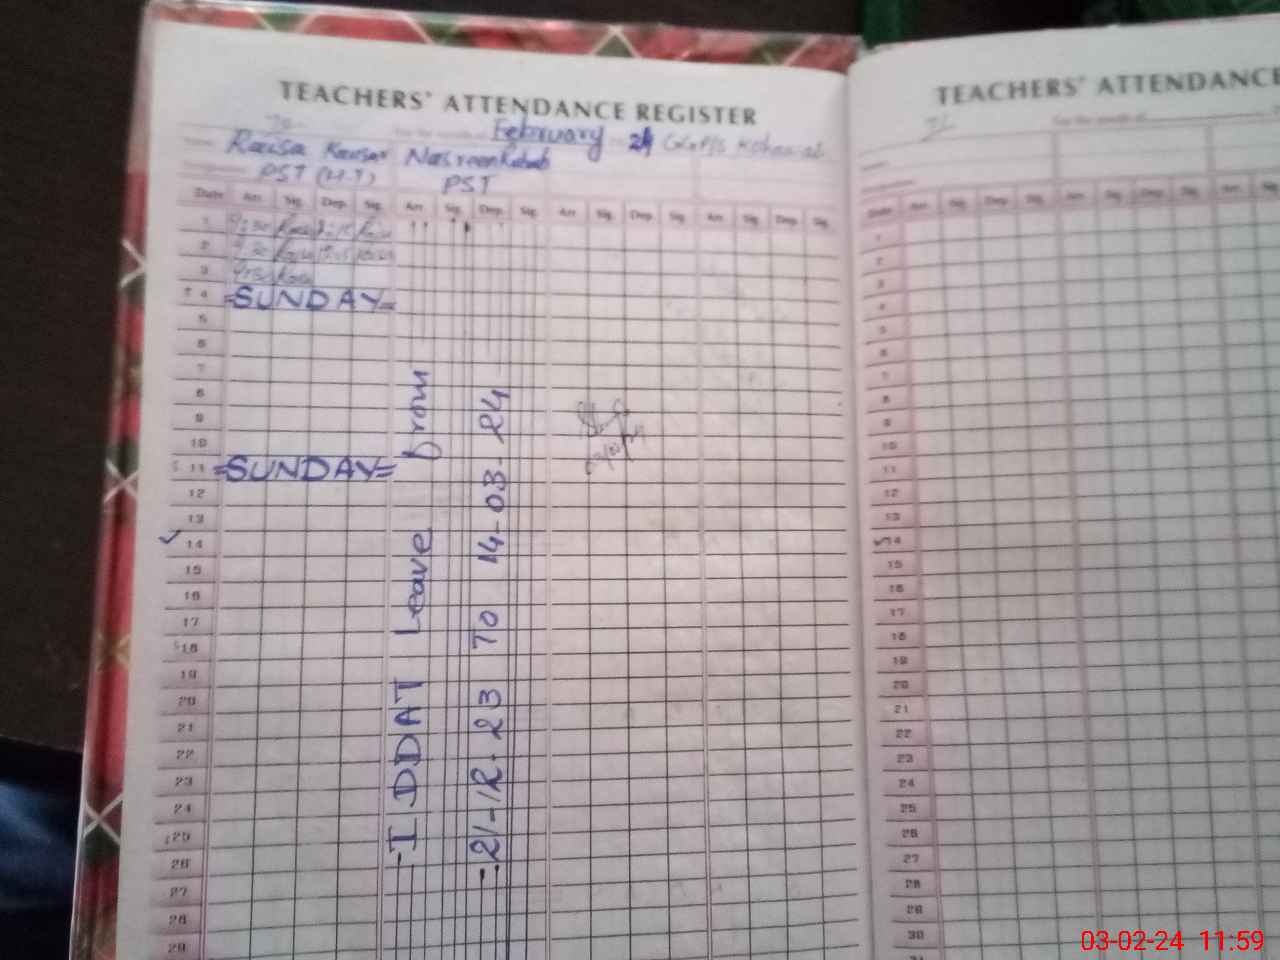 TEACHERS' ATTENDANCE REGISTER
For the month of February 24 GGPS
Raisa Kausar Nasreen
PST (H.T) PST
Date Arr. Sig. Dep. Sig. Arr. Sig. Dep. Sig. Arr. Sig. Dep. Sig. Arr. Sig. Dep. Sig.
1
2
3
4 =SUNDAY=
5
6
7
8
9
10
11 =SUNDAY=
12
13
14
15
16
17
18
19
20
21
22
23
24
25
26
27
28
29
IDDAT Leave from
21-12-23 TO 14-03-24
TEACHERS' ATTENDANCE
For the month of
Date Arr. Sig. Dep. Sig. Arr. Sig. Dep. Sig. Arr. Sig.
1
2
3
4
5
6
7
8
9
10
11
12
13
14
15
16
17
18
19
20
21
22
23
24
25
26
27
28
29
30
31
03-02-24 11:59